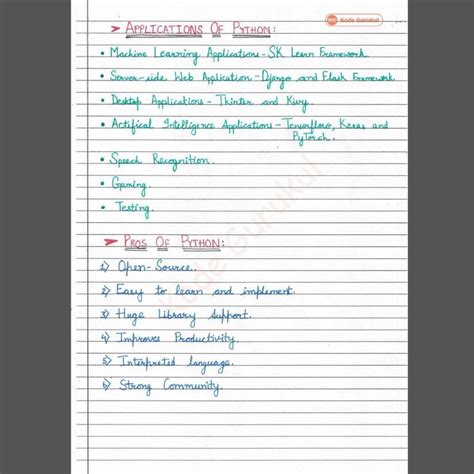 Kode Gurukul
➤ APPLICATIONS OF PYTHON:
• Machine Learning Applications - SK Learn Framework
• Server-side Web Application - Django and Flask Framework
• Desktop Applications - Tkinter and Kivy.
• Artifical Intelligence Applications - Tensorflow, Keras and
PyTorch.
• Speech Recognition.
• Gaming.
• Testing.
Kode Gurukul
➤ PROS OF PYTHON:
1) Open-Source.
2) Easy to learn and implement.
3) Huge Library Support.
4) Improves Productivity.
5) Interpreted language.
6) Strong Community.